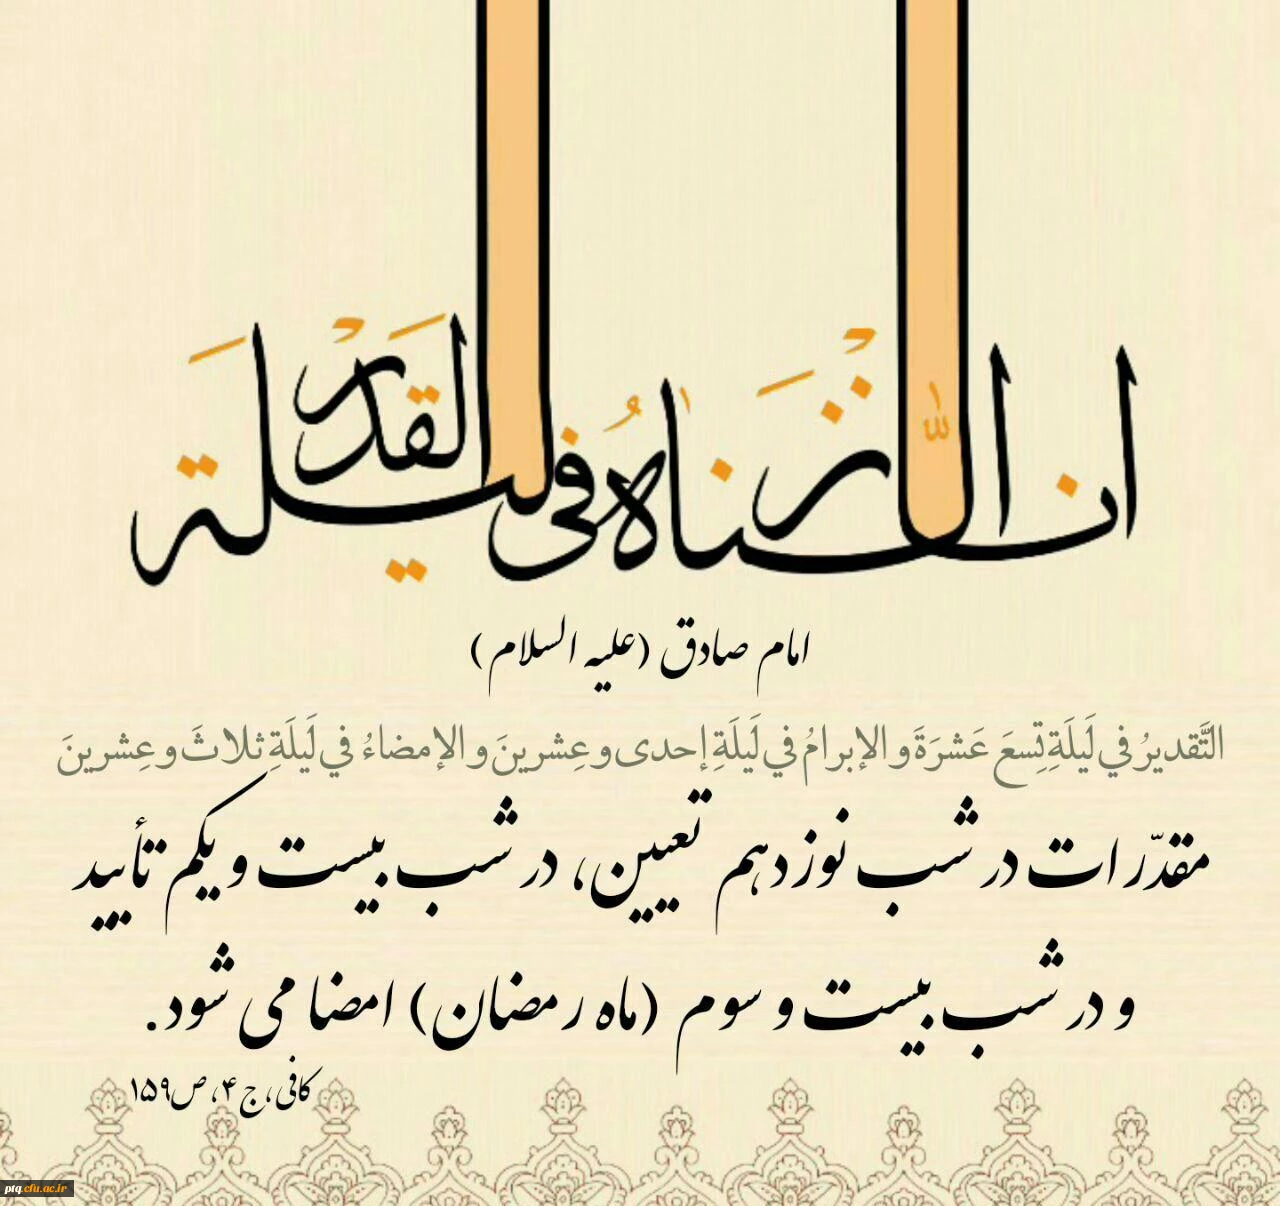 انا انزلناهُ فی لیلة القدر
امام صادق (علیه السلام)
التَّقدیرُ في لَیلَةِ تِسعَ عَشرَةَ و الإبرامُ في لَیلَةِ إحدی و عِشرینَ و الإمضاءُ في لَیلَةِ ثلاثَ و عِشرینَ
مقدّرات در شب نوزدهم تعیین، در شب بیست و یکم تأیید
و در شب بیست و سوم (ماه رمضان) امضا می شود.
کافی، ج ۴، ص ۱۵۹
ptq.cfu.ac.ir